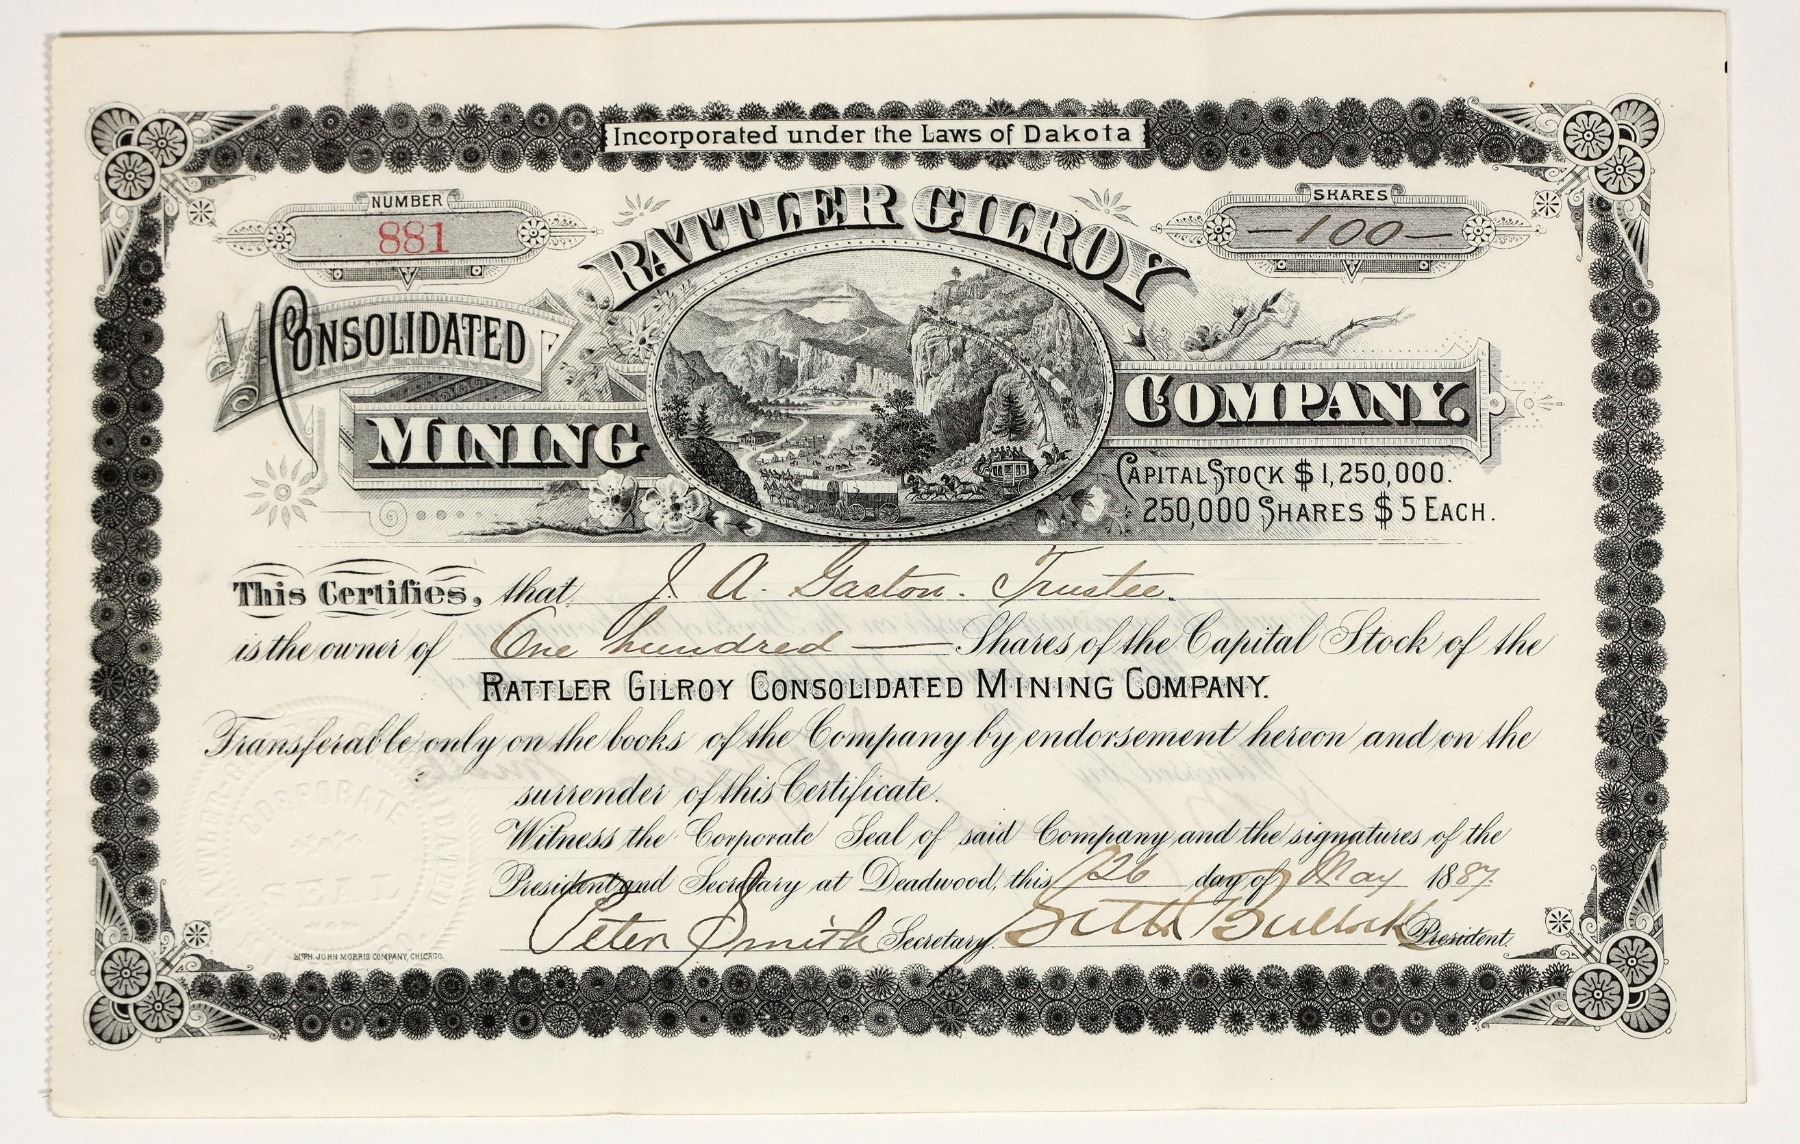 Incorporated under the Laws of Dakota
NUMBER
881
SHARES
—100—
RATTLER GILROY
CONSOLIDATED
MINING
COMPANY.
CAPITAL STOCK $1,250,000.
250,000 SHARES $5 EACH.
This Certifies, that J. A. Gaston. Trustee.
is the owner of One hundred — Shares of the Capital Stock of the
RATTLER GILROY CONSOLIDATED MINING COMPANY.
Transferable only on the books of the Company by endorsement hereon and on the
surrender of this Certificate.
Witness the Corporate Seal of said Company and the signatures of the
President and Secretary at Deadwood, this 26 day of May 1887.
Peter Smith Secretary. Seth Bullock President.
CORPORATE
SEAL
LITH. JOHN MORRIS COMPANY, CHICAGO.